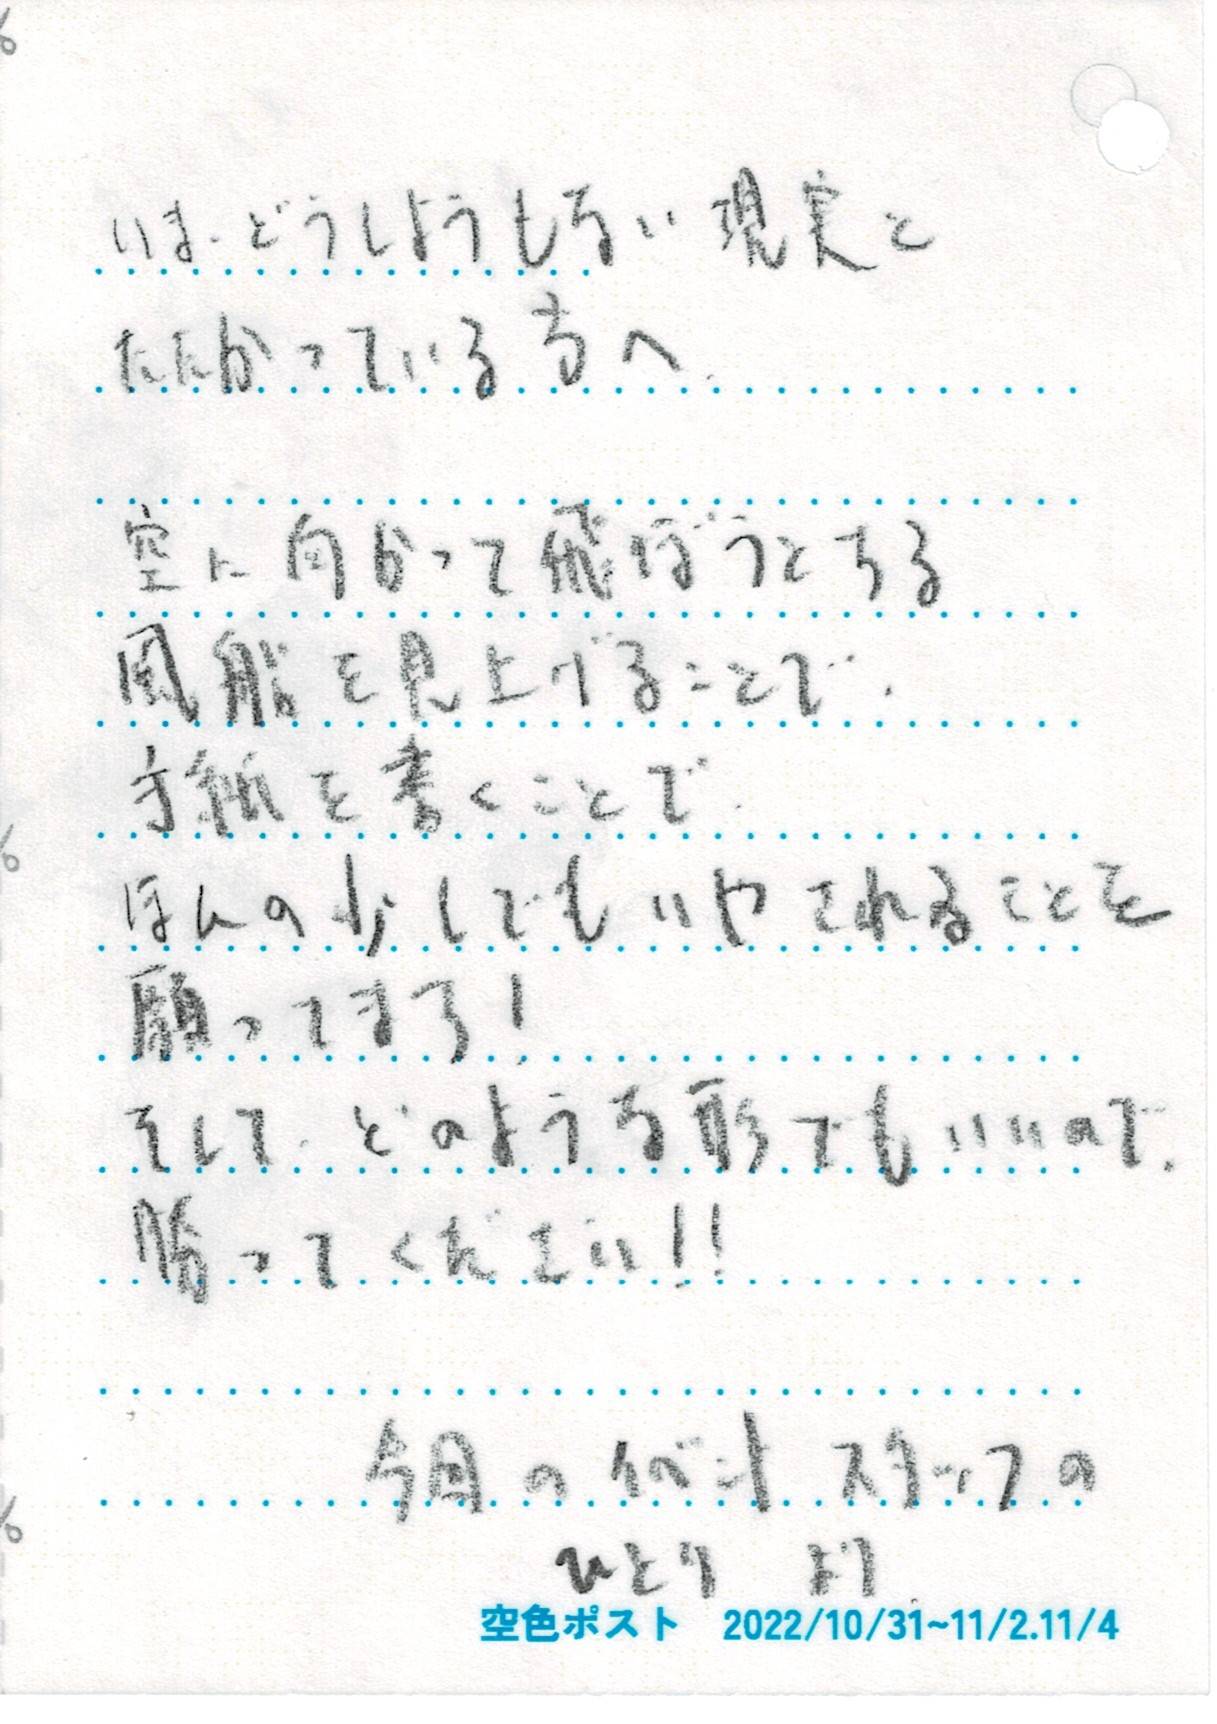 いま、どうしようもない現実と
たたかっている方へ
空に向かって飛ぼうとする
風船を見上げることで、
手紙を書くことで、
ほんの少しでもいやされることを
願ってます!
そして、どのような形でもいいので、
勝ってください!!
今回のイベントスタッフの
ひとり より
空色ポスト 2022/10/31~11/2.11/4